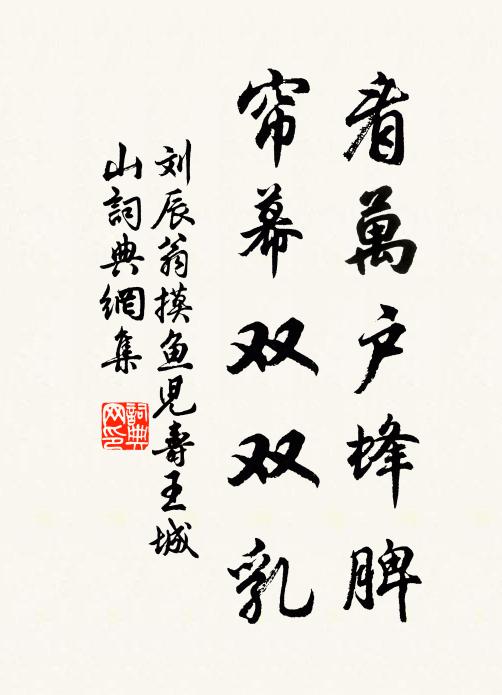 看萬户蜂脾
帘幕双双乳
刘辰翁摸鱼児壽王城
山詞典網集
詞典
网印